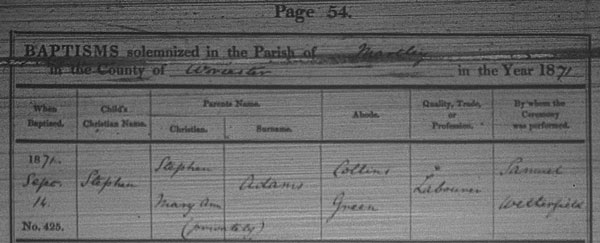 Page 54.
BAPTISMS solemnized in the Parish of Martley
in the County of Worcester in the Year 1871
When Baptized. Child's Christian Name. Parents Name. Christian. Surname. Abode. Quality, Trade, or Profession. By whom the Ceremony was performed.
1871. Stephen Collins Samuel
Sepr. Stephen Adams Labourer
14. Mary Ann Green Wetherfield
No. 425. (privately)